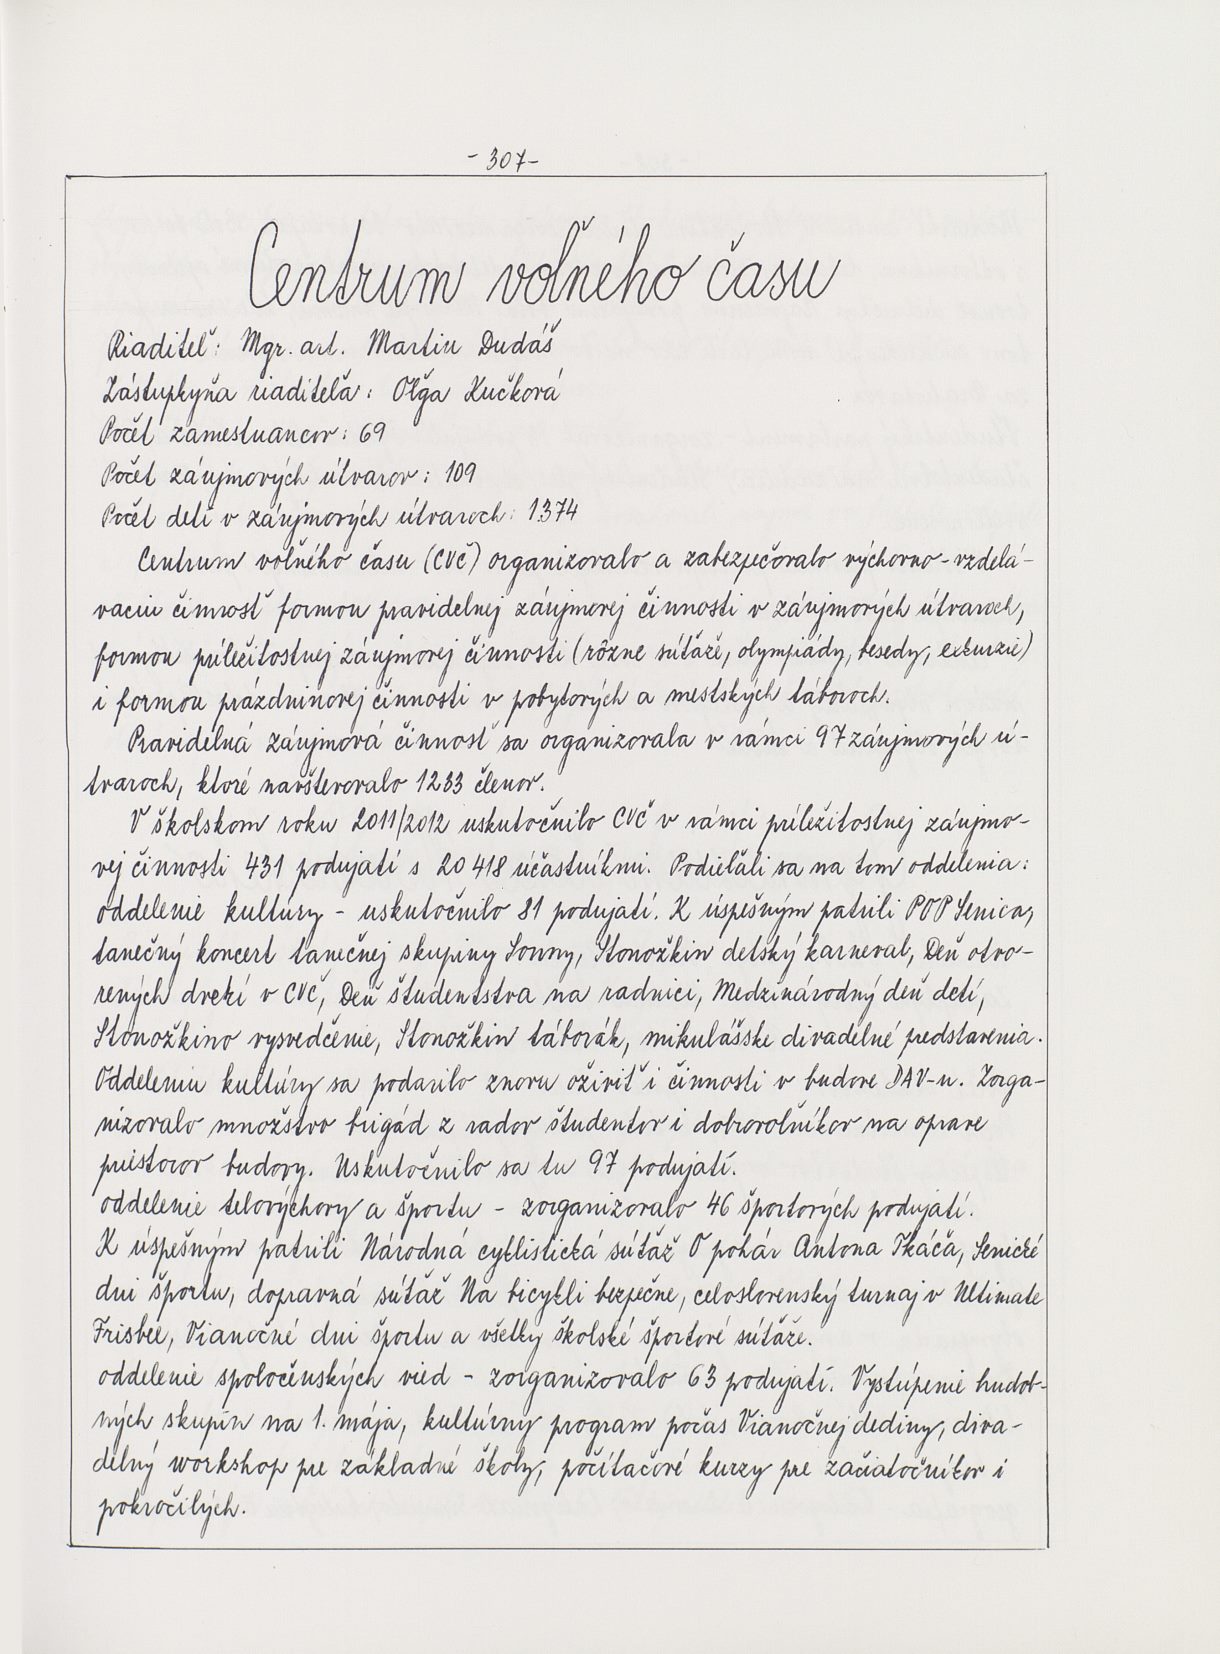 - 307 -
Centrum voľného času
Riaditeľ: Mgr. art. Martin Dudáš
Zástupkyňa riaditeľa: Oľga Kučková
Počet zamestnancov: 69
Počet záujmových útvarov: 109
Počet detí v záujmových útvaroch: 1374
Centrum voľného času (CVČ) organizovalo a zabezpečovalo výchovno-vzdelá-
vaciu činnosť formou pravidelnej záujmovej činnosti v záujmových útvaroch,
formou príležitostnej záujmovej činnosti (rôzne súťaže, olympiády, besedy, exkurzie)
i formou prázdninovej činnosti v pobytových a mestských táboroch.
Pravidelná záujmová činnosť sa organizovala v rámci 97 záujmových ú-
tvaroch, ktoré navštevovalo 1233 členov.
V školskom roku 2011/2012 uskutočnilo CVČ v rámci príležitostnej záujmo-
vej činnosti 431 podujatí s 20 418 účastníkmi. Podieľali sa na tom oddelenia:
oddelenie kultúry - uskutočnilo 81 podujatí. K úspešným patrili POP Senica,
tanečný koncert tanečnej skupiny Sonny, Stonožkin detský karneval, Deň otvo-
rených dverí v CVČ, Deň študentstva na radnici, Medzinárodný deň detí,
Stonožkino vysvedčenie, Stonožkin táborák, mikulášske divadelné predstavenia.
Oddeleniu kultúry sa podarilo znovu oživiť i činnosti v budove DAV-u. Zorga-
nizovalo množstvo brigád z radov študentov i dobrovoľníkov na oprave
priestorov budovy. Uskutočnilo sa tu 97 podujatí.
oddelenie telovýchovy a športu - zorganizovalo 46 športových podujatí.
K úspešným patrili Národná cyklistická súťaž O pohár Antona Tkáča, Senické
dni športu, dopravná súťaž Na bicykli bezpečne, celoslovenský turnaj v Ultimate
Frisbee, Vianočné dni športu a všetky školské športové súťaže.
oddelenie spoločenských vied - zorganizovalo 63 podujatí. Vystúpenie hudob-
ných skupín na 1. mája, kultúrny program počas Vianočnej dediny, diva-
delný workshop pre základné školy, počítačové kurzy pre začiatočníkov i
pokročilých.